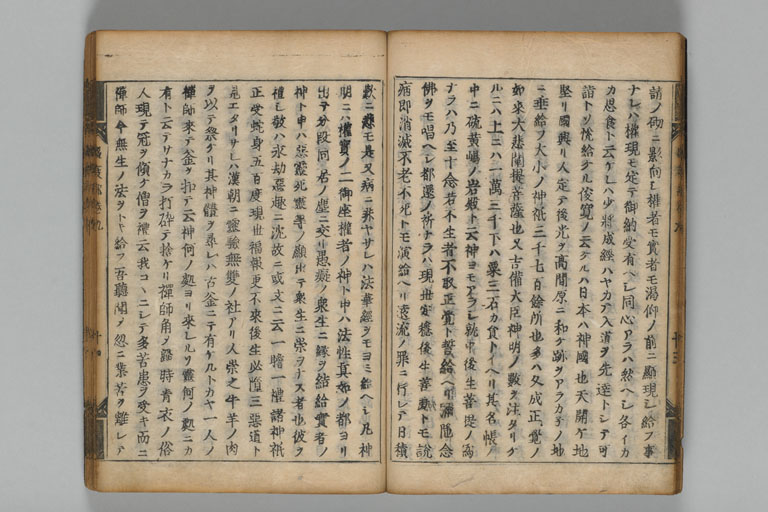 請ノ砌ニ影向シ権者モ實者モ渇仰ノ前ニ顯現シ給フ事
ナレハ権現モ定テ御納受有ヘシ同心アラハ然ヘシ各イカ
カ思食ト云ケレハ少将成經ハヤカテ入道ヲ先達トシテ可
詣トソ悦給ケル俊寛ノ云ケルハ日本ハ神國也天開ケ地
堅リ國興リ人定テ後光ヲ高間原ニ和ケ跡ヲアラカネノ地
ニ垂給フ大小ノ神祇三千七百餘所也多ハ久成正覺ノ
如来大悲闡提菩薩也又吉備大臣神明ノ數ヲ注タリケ
ルニハ上ニハ一萬三千下ハ粟三石カ食トイヘリ其名帳ノ
中ニ硫黄嶋ノ岩殿ト云神ヨモアラシ就中後生菩提ノ為
ナラハ乃至十念若不生者不取正覺ト誓給ヘリ彌陀念
佛ヲモ唱ヘシ都還ノ祈ナラハ現世安穏後生善處トモ説
病即消滅不老不死トモ演給ヘリ遠流ノ罪ニ行レテ日積
歎ニ悲モ是又病ニ非ヤサレハ法華經ヲモヨミ給ヘシ凡神
明ニハ權實ノ二御座權者ノ神ト申ハ法性真如ノ都ヨリ
出テ分段同居ノ塵ニ交リ愚癡ノ衆生ニ縁ヲ結給實者ノ
神ト申ハ惡靈死靈等ノ顯出テ衆生ニ祟ヲナス者也彼ヲ
禮シ敬ハ永劫惡趣ニ沈故ニ或文ニ云一瞻一禮諸神祇
正受蛇身五百度現世福報更不來後生必墮三惡道ト
見エタリサレハ漢朝ニ靈驗無雙ノ社アリ人崇之牛羊ノ肉
ヲ以テ祭ケリ其神體ヲ尋レハ古釜ニテ有ケルトカヤ一人ノ
禪師来テ釜ヲ扣テ云神何ノ處ヨリ来レルソ靈何ノ處ニカ
有ト云テサナカラ打砕テ捨ケリ禪師角ヲ露時青衣ノ俗
人現テ冠ヲ傾ケ僧ヲ禮云我コヽニシテ多苦患ヲ受キ而ニ
禪師今無生ノ法ヲトキ給フ吾聽聞ヲ忽ニ業苦ヲ離レテ